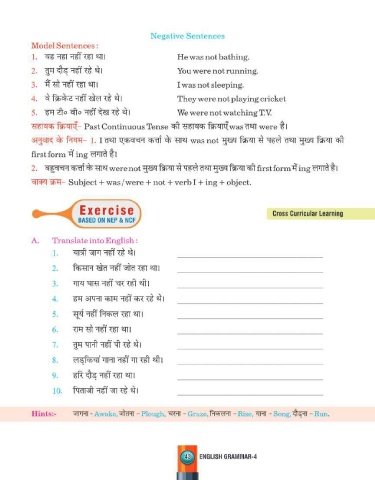 Negative Sentences
Model Sentences :
1. वह नहा नहीं रहा था। He was not bathing.
2. तुम दौड़ नहीं रहे थे। You were not running.
3. मैं सो नहीं रहा था। I was not sleeping.
4. वे क्रिकेट नहीं खेल रहे थे। They were not playing cricket
5. हम टी० वी० नहीं देख रहे थे। We were not watching T.V.
सहायक क्रियाएँ– Past Continuous Tense की सहायक क्रियाएँ was तथा were हैं।
अनुवाद के नियम– 1. I तथा एकवचन कर्त्ता के साथ was not मुख्य क्रिया से पहले तथा मुख्य क्रिया की
first form में ing लगाते हैं।
2. बहुवचन कर्त्ता के साथ were not मुख्य क्रिया से पहले तथा मुख्य क्रिया की first form में ing लगाते हैं।
वाक्य क्रम– Subject + was/were + not + verb I + ing + object.
Exercise
BASED ON NEP & NCF
Cross Curricular Learning
A. Translate into English :
1. यात्री जाग नहीं रहे थे।
2. किसान खेत नहीं जोत रहा था।
3. गाय घास नहीं चर रही थी।
4. हम अपना काम नहीं कर रहे थे।
5. सूर्य नहीं निकल रहा था।
6. राम सो नहीं रहा था।
7. तुम पानी नहीं पी रहे थे।
8. लड़कियां गाना नहीं गा रही थी।
9. हरि दौड़ नहीं रहा था।
10. पिताजी नहीं जा रहे थे।
Hints:- जागना - Awake, जोतना - Plough, चरना - Graze, निकलना - Rise, गाना - Song, दौड़ना - Run.
ENGLISH GRAMMAR-4